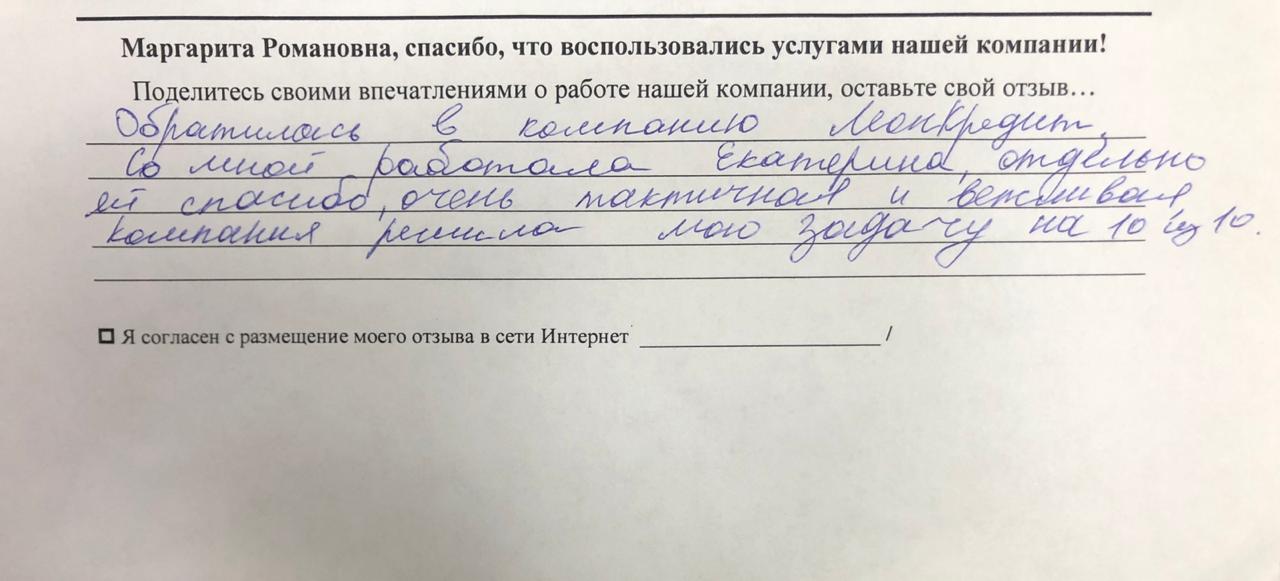 Маргарита Романовна, спасибо, что воспользовались услугами нашей компании!
Поделитесь своими впечатлениями о работе нашей компании, оставьте свой отзыв…
Обратилась в компанию МонКредит.
Со мной работала Екатерина, отдельно
ей спасибо, очень тактичная и вежливая
Компания решила мою задачу на 10 из 10.
Я согласен с размещение моего отзыва в сети Интернет ____________________ /